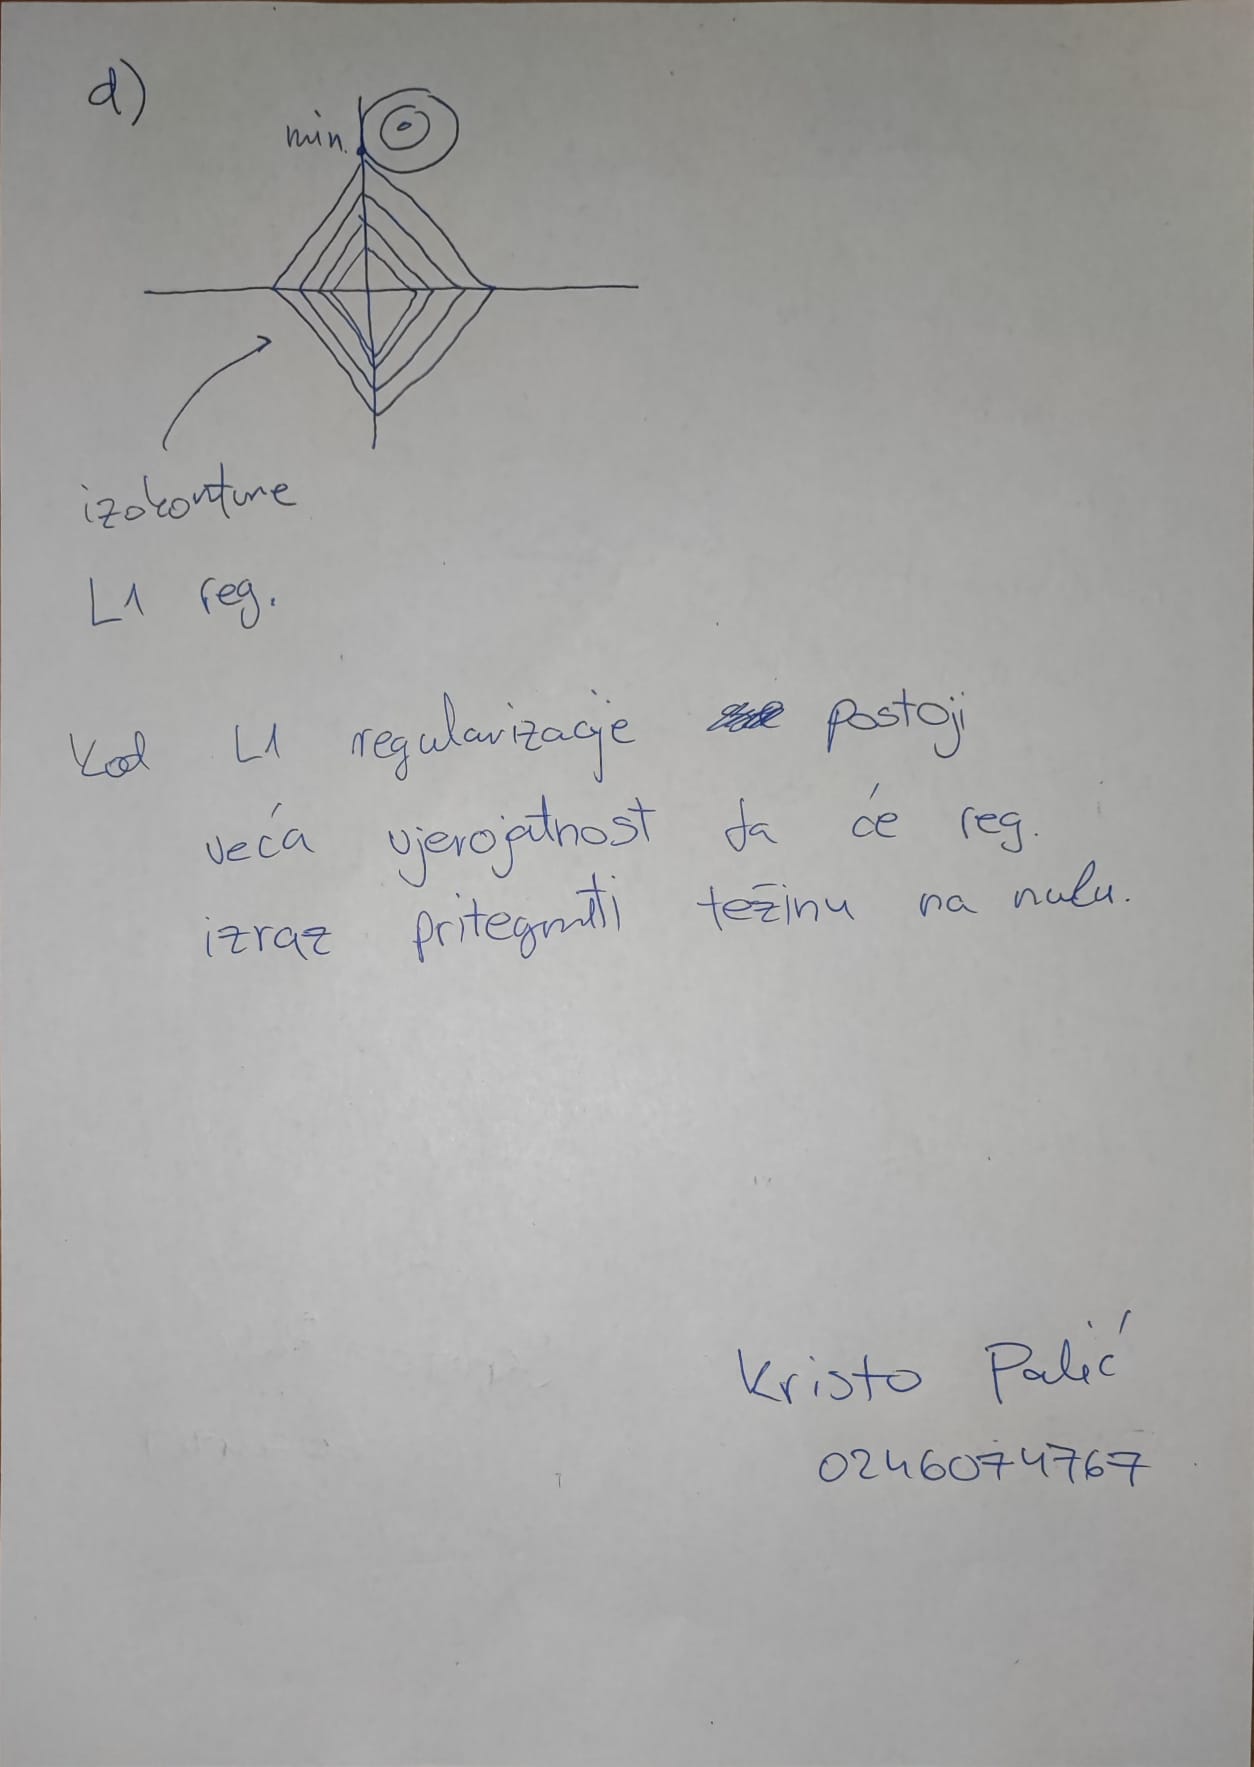 d)
min.
izokonture
L1 reg.
Kod L1 regularizacije postoji
veća vjerojatnost da će reg.
izraz pritegnuti težinu na nulu.
Kristo Palić
0246074767